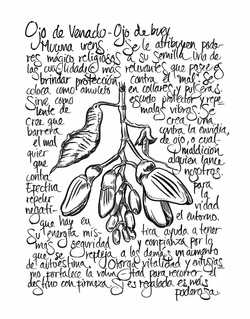 Ojo de Venado - Ojo de buey
Mucuna urens Se le atribuyen pode-
res mágico religiosos a su semilla. Una de
las cualidades más relevantes que posee es
brindar protección contra el mal. Se
coloca como amuleto en collares y pulseras
Sirve, como escudo protector y repe-
lente de malas vibras.
Cree que crea una
barrera contra la envidia,
el mal de ojo, o cual
quier maldición
que alguien lance
contra nosotros.
Efectiva para
repeler la
negati- vidad
que hay en el entorno.
Su energía mís- tica, ayuda a tener
mas seguridad y confianza por lo
que se refleja a los demás, un aumento
de autoestima y otorga vitalidad y entusias-
mo fortalece la voluntad para recorrer, el
destino con firmeza. Si es regalada es más
poderosa